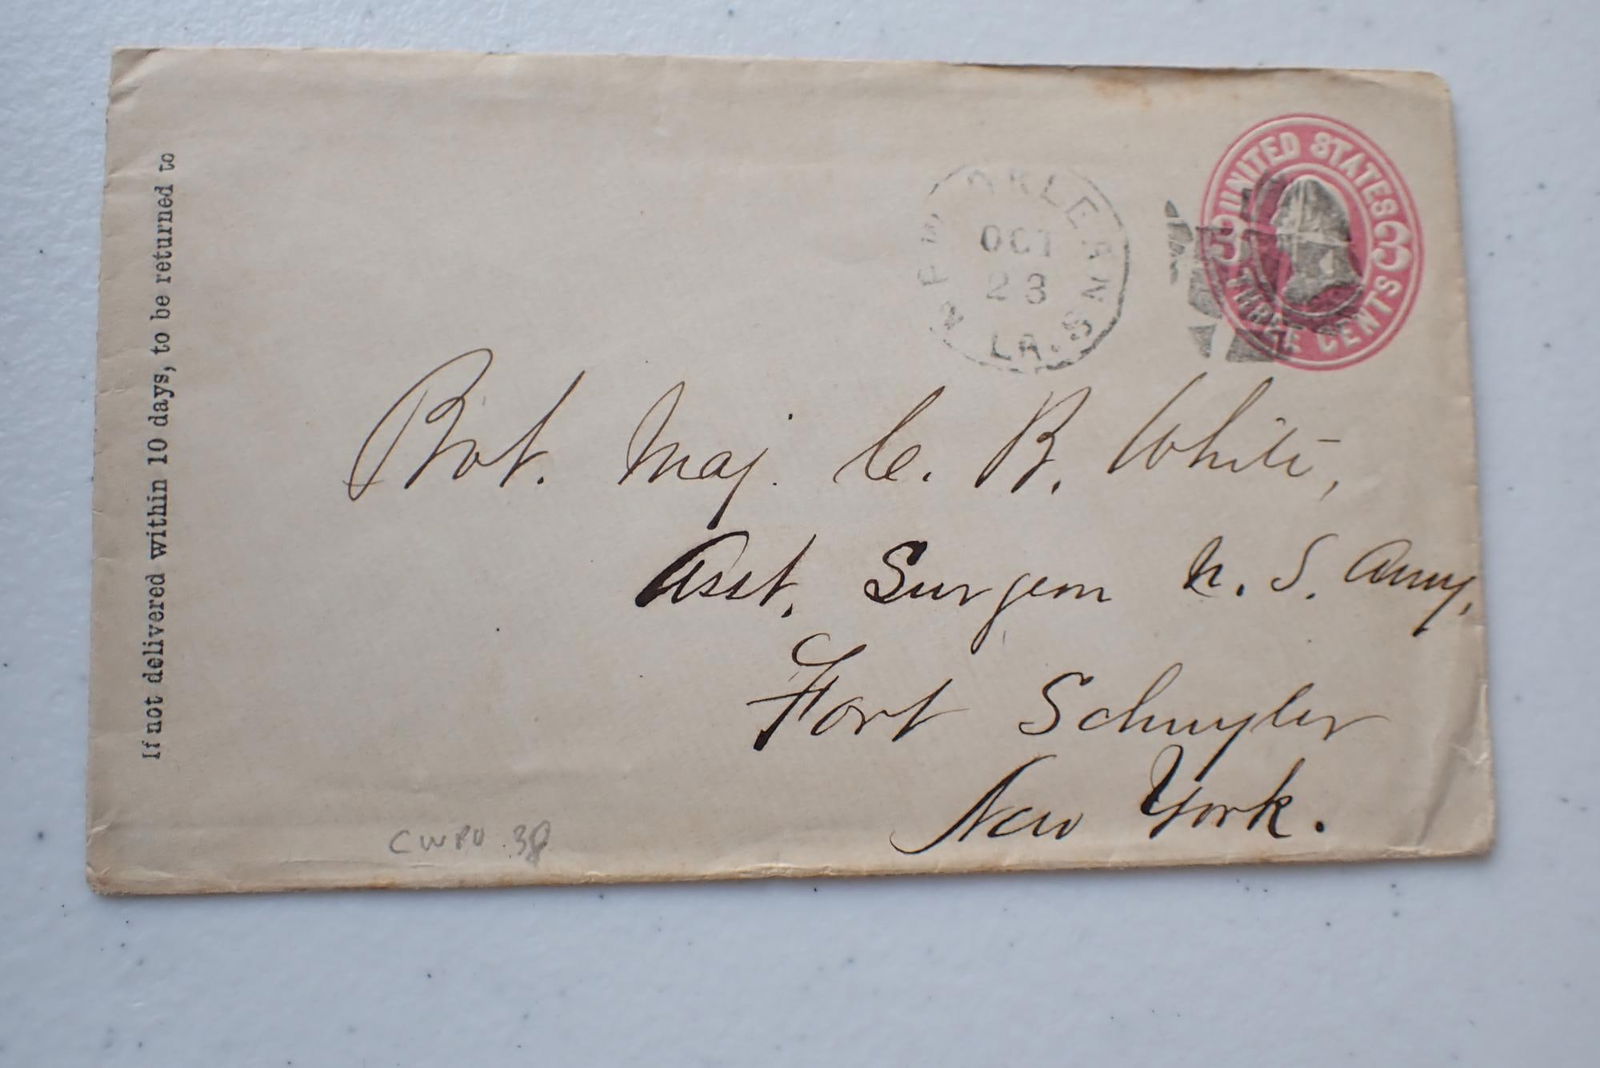 If not delivered within 10 days, to be returned to
NEW ORLEANS
OCT
23
LA.
UNITED STATES
3 3
THREE CENTS
Bvt. Maj. C. B. White,
Asst. Surgeon U. S. Army,
Fort Schuyler
New York.